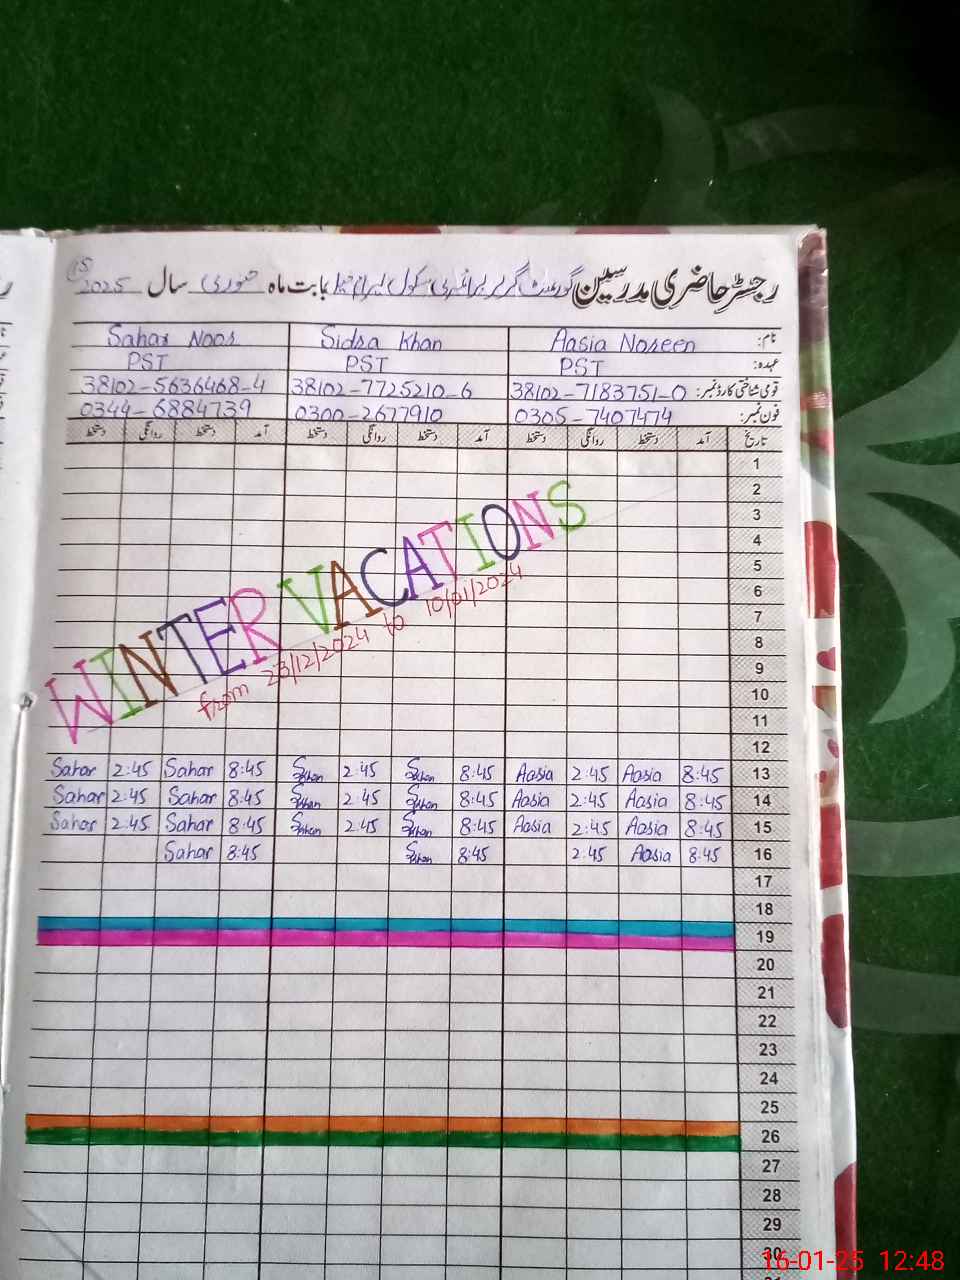 رجسٹر حاضری مدرسین گورنمنٹ گرلز پرائمری سکول بابت ماہ جنوری سال 2025
15
نام: Aasia Noreen Sidra Khan Sahar Noor
عہدہ: PST PST PST
قومی شناختی کارڈ نمبر: 38102-7183751-0 38102-7725210-6 38102-5636468-4
فون نمبر: 0305-7407474 0300-2677910 0344-6884739
تاریخ آمد دستخط روانگی دستخط آمد دستخط روانگی دستخط آمد دستخط روانگی دستخط
1
2
3
4
5
6
7
8
9
10
11
12
WINTER VACATIONS
from 23/12/2024 to 10/01/2024
Sahar 2:45 Sahar 8:45 SKhan 2:45 SKhan 8:45 Aasia 2:45 Aasia 8:45 13
Sahar 2:45 Sahar 8:45 SKhan 2:45 SKhan 8:45 Aasia 2:45 Aasia 8:45 14
Sahar 2:45 Sahar 8:45 SKhan 2:45 SKhan 8:45 Aasia 2:45 Aasia 8:45 15
Sahar 8:45 SKhan 8:45 2:45 Aasia 8:45 16
17
18
19
20
21
22
23
24
25
26
27
28
29
30
16-01-25 12:48